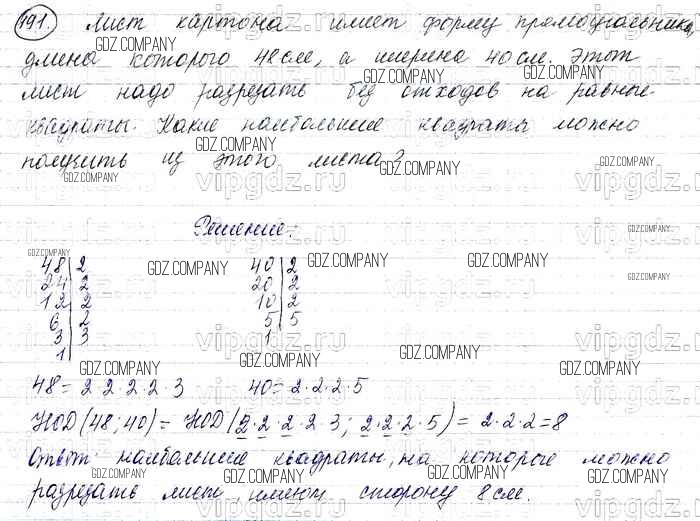 191. Лист картона имеет форму прямоугольника,
длина которого 48 см, а ширина 40 см. Этот
лист надо разрезать без отходов на равные
квадраты. Какие наибольшие квадраты можно
получить из этого листа?
Решение:
48|2 40|2
24|2 20|2
12|2 10|2
6|2 5|5
3|3 1
1
48 = 2·2·2·2·3 40 = 2·2·2·5
НОД(48;40) = НОД(2·2·2·2·3; 2·2·2·5) = 2·2·2=8
Ответ: наибольшие квадраты, на которые можно
разрезать лист, имеют сторону 8 см.
GDZ.COMPANY
vipgdz.ru